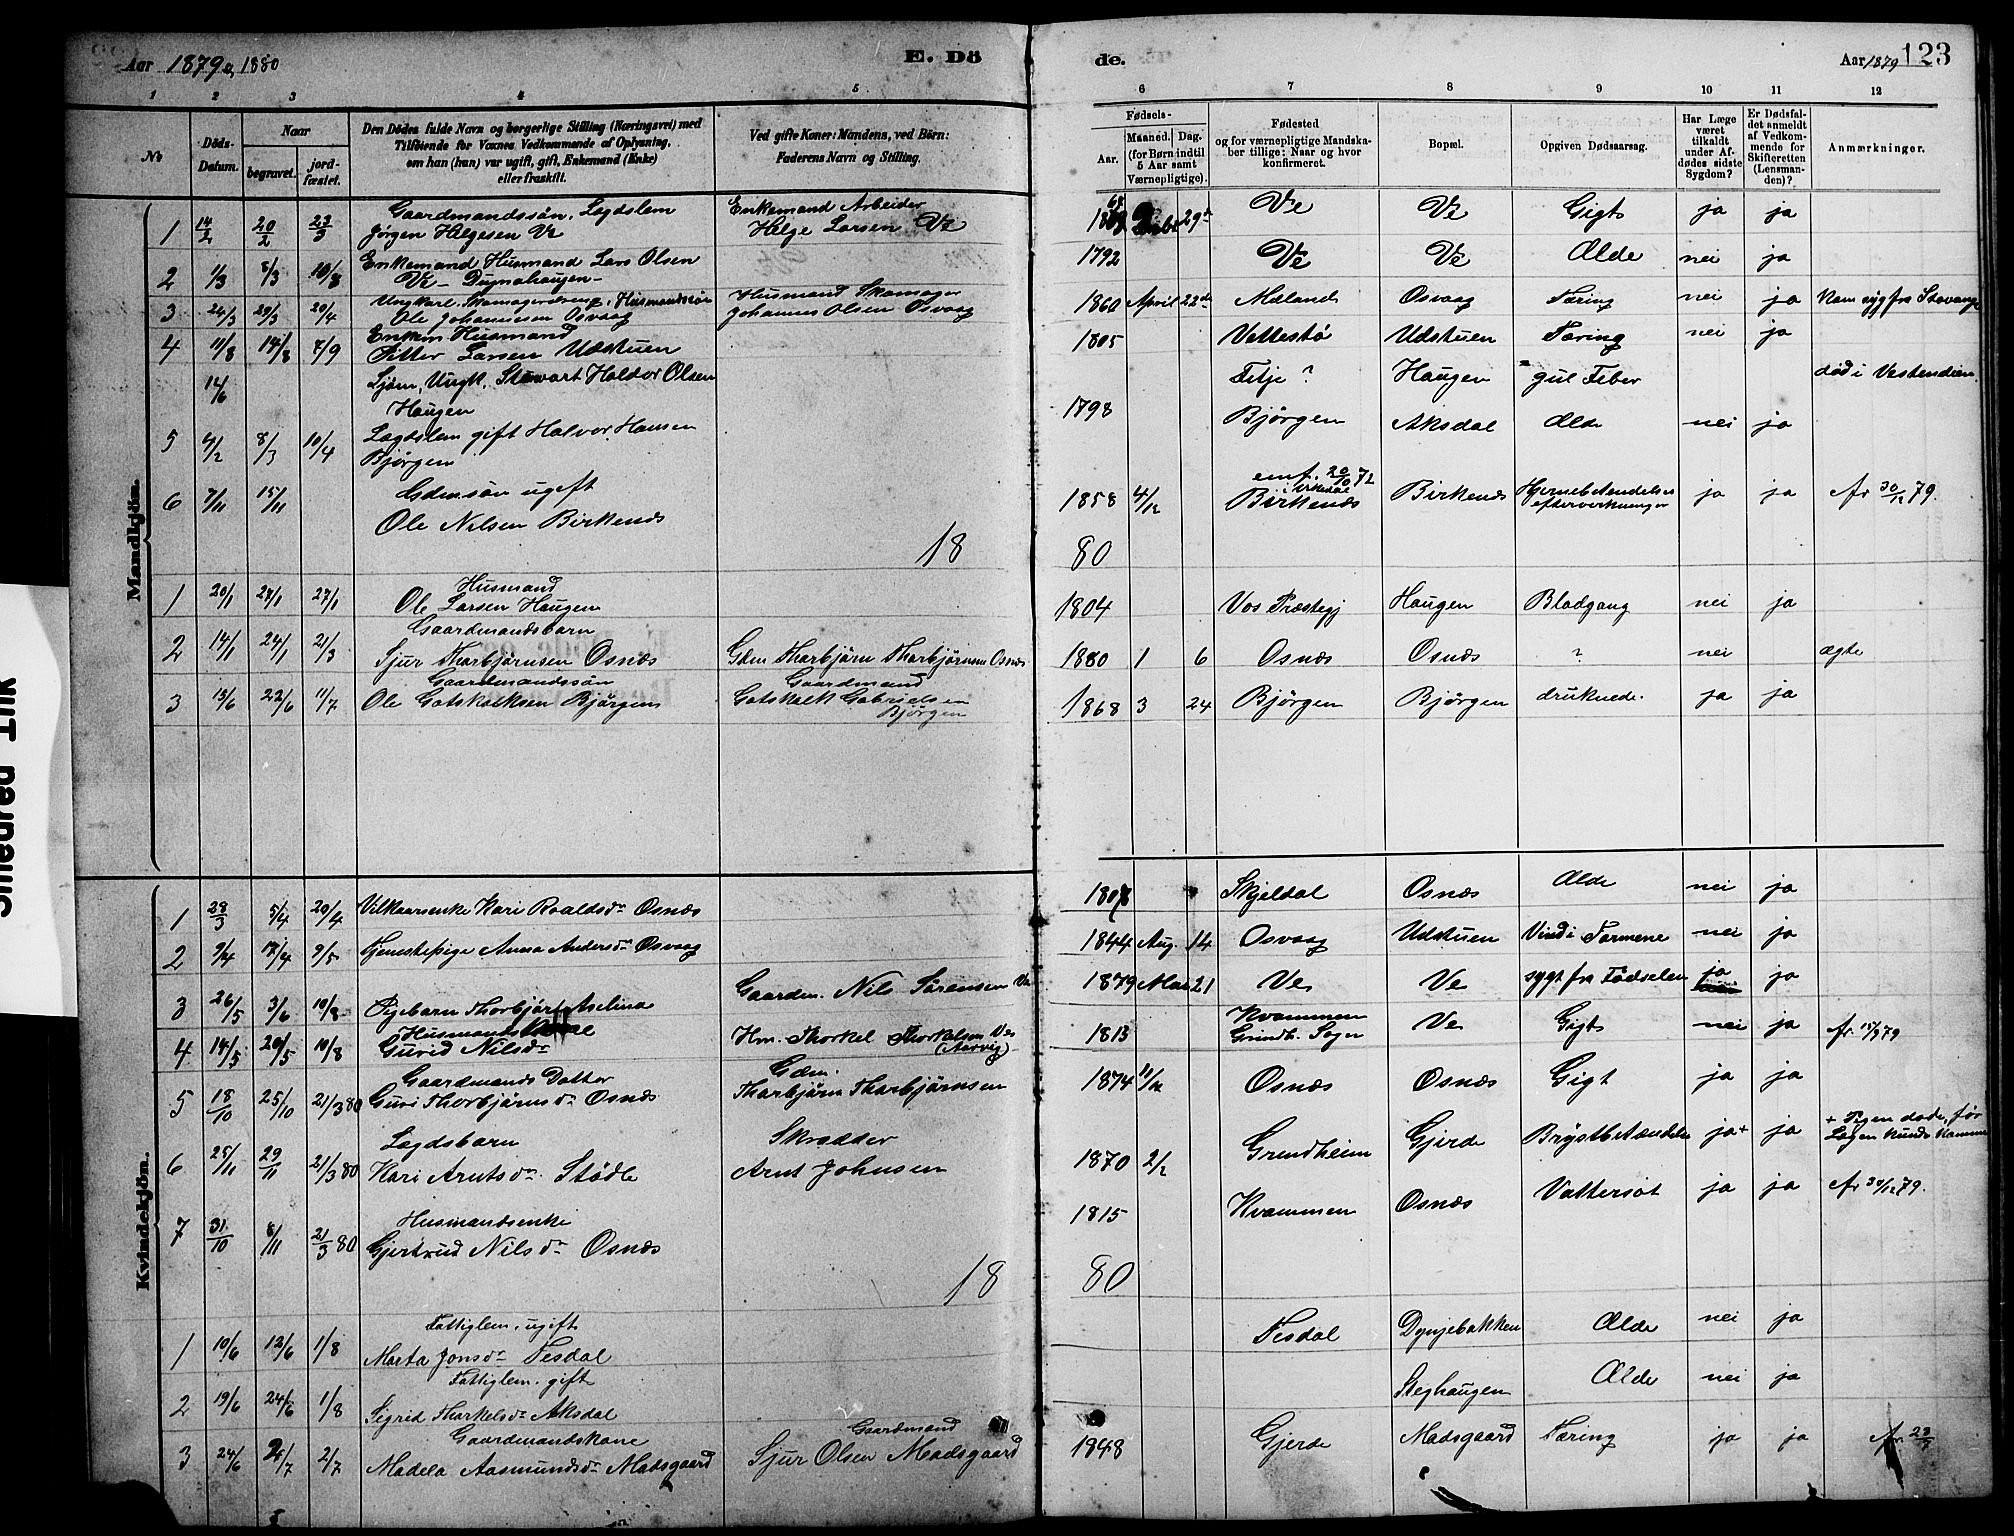 Aar 1879 & 1880
E. Dö
de.
Aar 1879
123
1 2 3 4 5 6 7 8 9 10 11 12
No
Döds-Datum.
Naar
begravet.
jord-fæstet.
Den Dödes fulde Navn og borgerlige Stilling (Næringsvei) med
Tilföiende for Voxnes Vedkommende af Oplysning,
om han (hun) var ugift, gift, Enkemand (Enke)
eller fraskilt.
Ved gifte Koner: Mandens, ved Börn:
Faderens Navn og Stilling.
Fødsels-
Aar.
Maaned. Dag.
(for Børn indtil
5 Aar samt
Værnepligtige).
Fødested
og for værnepligtige Mandska-
ber tillige: Naar og hvor
konfirmeret.
Bopæl.
Opgiven Dødsaarsag.
Har Læge
været
tilkaldt
under Af-
dødes sidste
Sygdom?
Er Dødsfal-
det anmeldt
af Vedkom-
mende for
Skifteretten
(Lensman-
den)?
Anmærkninger.
Mandkjön.
1 14/2 20/2 23/3 Gaardmandssön, Lægdslem
Jørgen Helgesen Ve
Enkemand Arbeider
Helge Larsen Ve
68 29de Ve Ve Gigt ja ja
2 1/3 8/3 10/8 Enkemand Husmand Lars Olsen
Ve - Dynahaugen -
1792 Ve Ve Ælde nei ja
3 24/3 29/3 20/4 Ungkarl, Husmandssön
Ole Johannesen Osvaag
Husmand Skomager
Johannes Olsen Osvaag
1860 April 22de Mæland Osvaag Tæring nei ja Kom syg fra Stavanger
4 11/8 14/8 7/9 Enkem. Husmand
Pitter Larsen Udstuen
1805 Vattestø Udstuen Tæring nei ja
14/6 Sjöm. Ungk. Stewart Haldor Olsen
Haugen
Fitje ? Haugen gul Feber död i Vestendien
5 4/2 8/3 10/4 Lægdslem gift Halvor Hansen
Bjørgen
1798 Bjørgen Aksdal Ælde nei ja
6 7/11 15/11 Gdmsön ugift
Ole Nilsen Birkenæs
1858 4/12 Birkenæs 20/10 72 Birkenæs Hjernebetændelses
eftervirkninger ja ja Afr 30/12 79.
18 80
1 20/1 27/1 27/1 Husmand
Ole Larsen Haugen
1804 Vos Præstegj Haugen Blodgang nei ja
2 14/1 24/1 21/3 Gaardmandsbarn
Sjur Thorbjørnsen Osnæs
Gdm Thorbjörn Thorbjörnsen Osnæs
1880 1 6 Osnæs Osnæs ? nei ægte
3 15/6 22/6 11/7 Gaardmandssön
Ole Gotskalksen Bjørgen
Gaardmand
Gotskalk Gabrielsen
Bjørgen
1868 3 24 Bjørgen Bjørgen druknede. ja ja
Kvindekjön.
1 28/3 5/4 20/4 Vilkaarsenke Kari Roaldsdr Osnæs
1807 Skjeldal Osnæs Ælde nei ja
2 9/4 17/4 9/5 Tjenestepige Anna Andersdr Osvaag
1844 Aug. 14 Osvaag Udstuen Vind i Tarmene nei ja
3 26/5 3/6 10/8 Pigebarn Thorbjør Aselina
Gaardm. Nils Sørensen Ve
1879 Mai 21 Ve Ve sygt fra Fødselen ja ja
4 14/5 20/5 10/8 Husmands
Gurid Nilsdr
Hm. Thorkel Thorkelsen Ve
(Aarvig)
1813 Kvammen
Grindh. Sogn Ve Gigt nei ja Afr 15/9 79
5 18/10 25/10 21/3 80 Gaardmands Datter
Guri Thorbjørnsdr Osnæs
Gdm.
Thorbjörn Thorbjørnsen
1874 11/12 Osnæs Osnæs Gigt ja ja
6 25/11 29/11 21/3 80 Lægdsbarn
Kari Arntsdr Stødle
Skrædder
Arnt Johnsen
1870 2/2 Grindheim Gjerde Brystbetændelse ja+ ja + Pigen døde, før
Lægen kunde komme
7 31/10 8/11 21/3 80 Husmandsenke
Gjertrud Nilsdr Osnæs
1815 Kvammen Osnæs Vattersot ja ja Afr 30/12 79.
18 80
1 10/6 12/6 1/8 Fattiglem, ugift
Marta Jonsdr Tesdal
Tesdal Dynjebakken Ælde nei ja
2 19/6 24/6 1/8 Fattiglem. gift
Sigrid Thorkelsdr Aksdal
Steghaugen Ælde nei ja
3 24/6 2/7 2/7 Gaardmandskone
Madela Aasmundsdr Madsgaard
Gaardmand
Sjur Olsen Madsgaard
1848 Gjerde Madsgaard Tæring ja ja